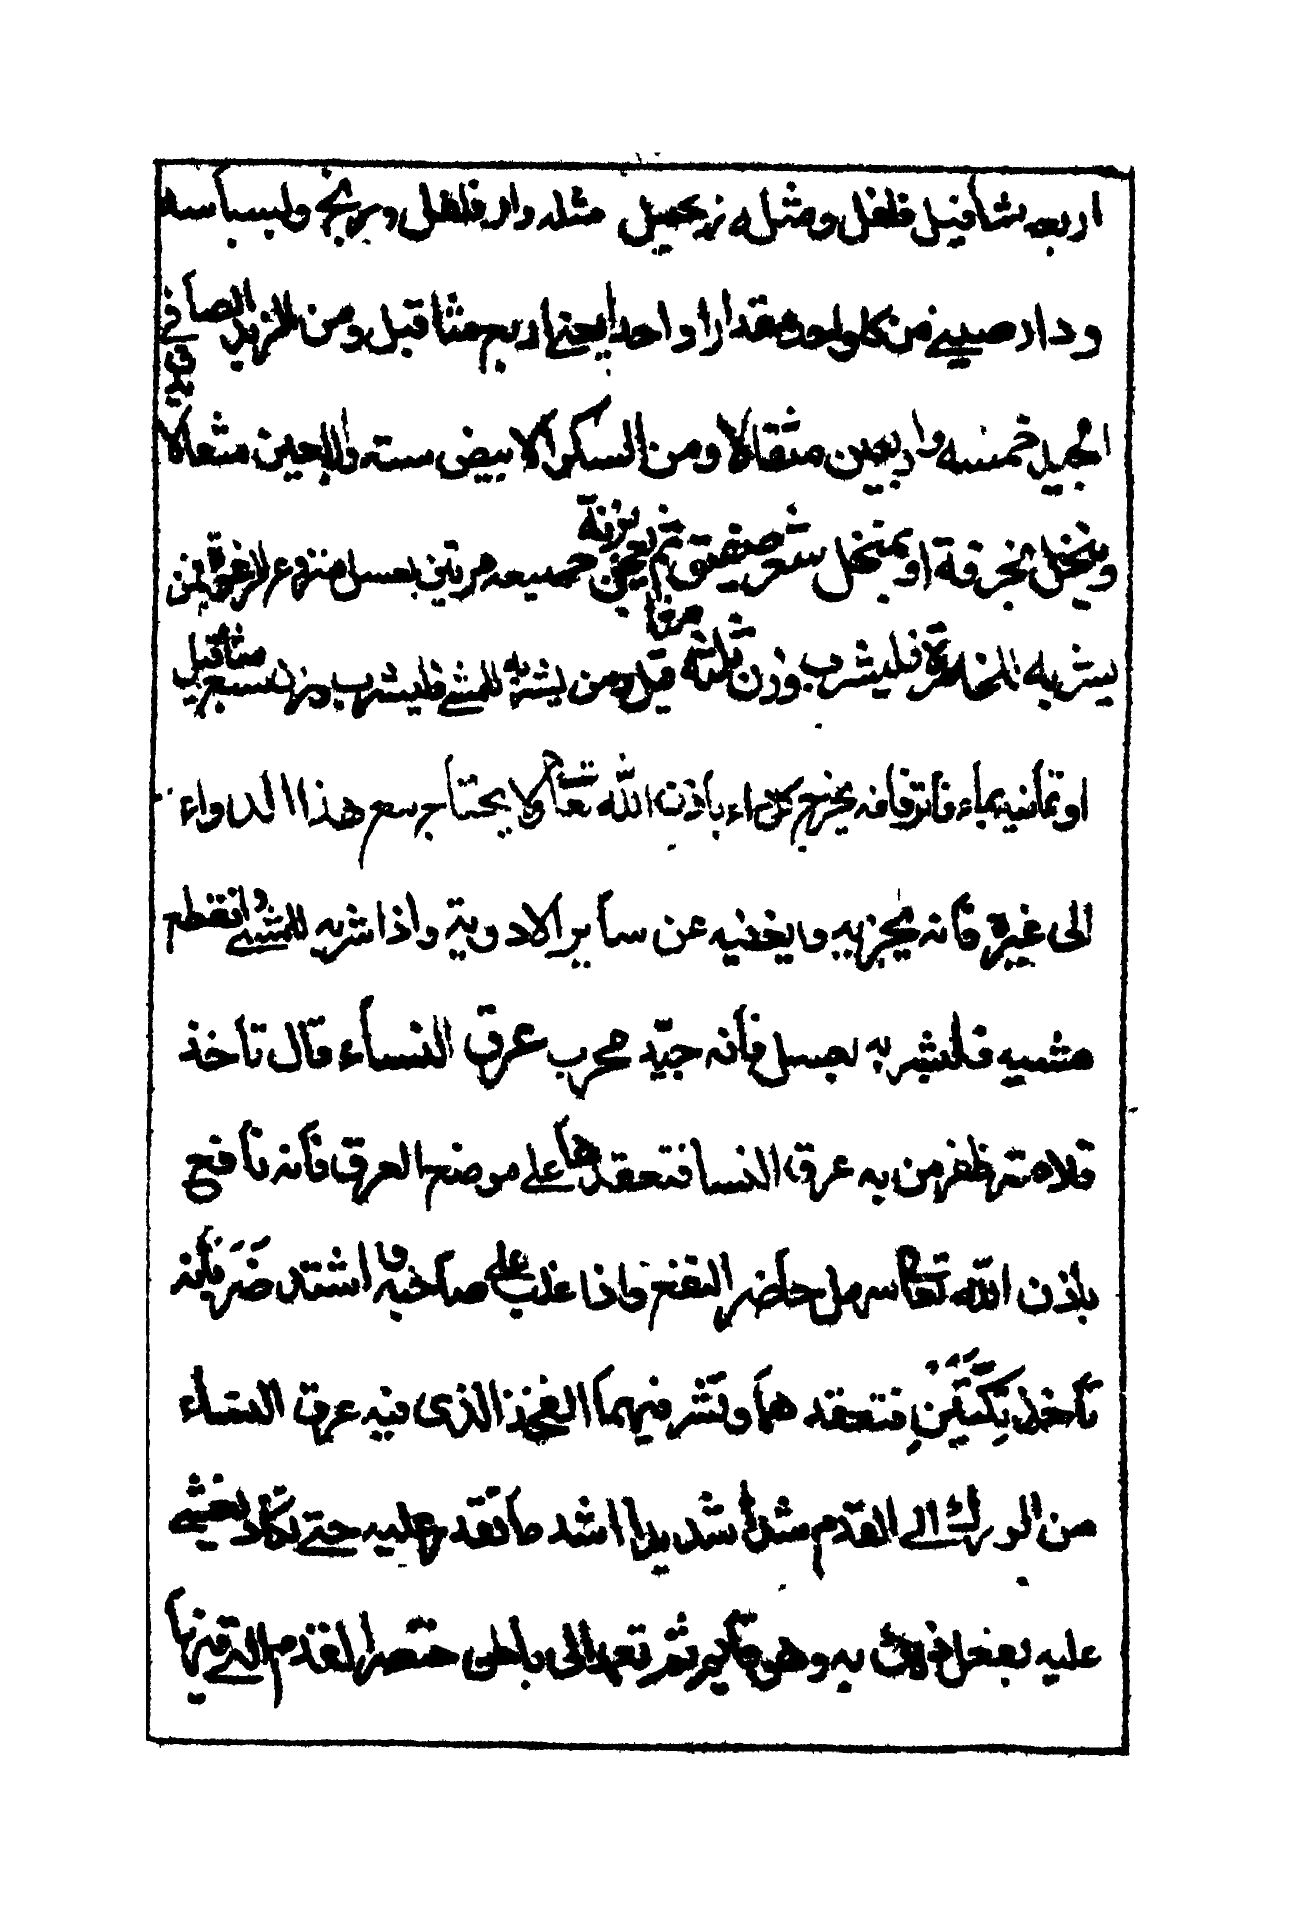 اربعه مثاقيل فلفل ومثله زنجبيل مثله دار فلفل وبرنج ولبساسه
ودار صيني من كل واحد مقدارا واحدا يعني اربع مثاقيل ومن التربد الصافي
الجيد خمسه واربعين مثقالا ومن السكر الابيض سته واربعين مثقالا
وينخل بخرقة او بمنخل شعر صفيق ثم يعجن جميعه مرتين بعسل منزوع الرغوة فمن
يشربه للتخمة فليشرب وزن ثلثة مثاقيل ومن يشربه للمشي فليشرب وزن سبع مثاقيل
او ثمانيه بماء فاتر فانه يخرج كل داء باذن الله تعالى ولا يحتاج مع هذا الدواء
الى غيره فانه يجزيه ويغنيه عن ساير الادويه واذا شربه للمشي انقطع
مشيه فليشربه بعسل فانه جيّد مجرب عرق النساء قال تاخذ
قلامة ظفر من به عرق النسا فتعقدها على موضع العرق فانه نافع
باذن الله تعالى سهل حاضر النفع واذا غلب على صاحبه واشتد ضربانه
تأخذ تكّتين فتعقدهما وتشر فيهما الفخذ الذي فيه عرق النساء
من الورك الى القدم شدا شديدا اشد ما تقدر عليه حتى يكاد يغشى
عليه يفعل ذلك به وهو قايم ثم تعمد الى باطن خنصر القدم التي فيها